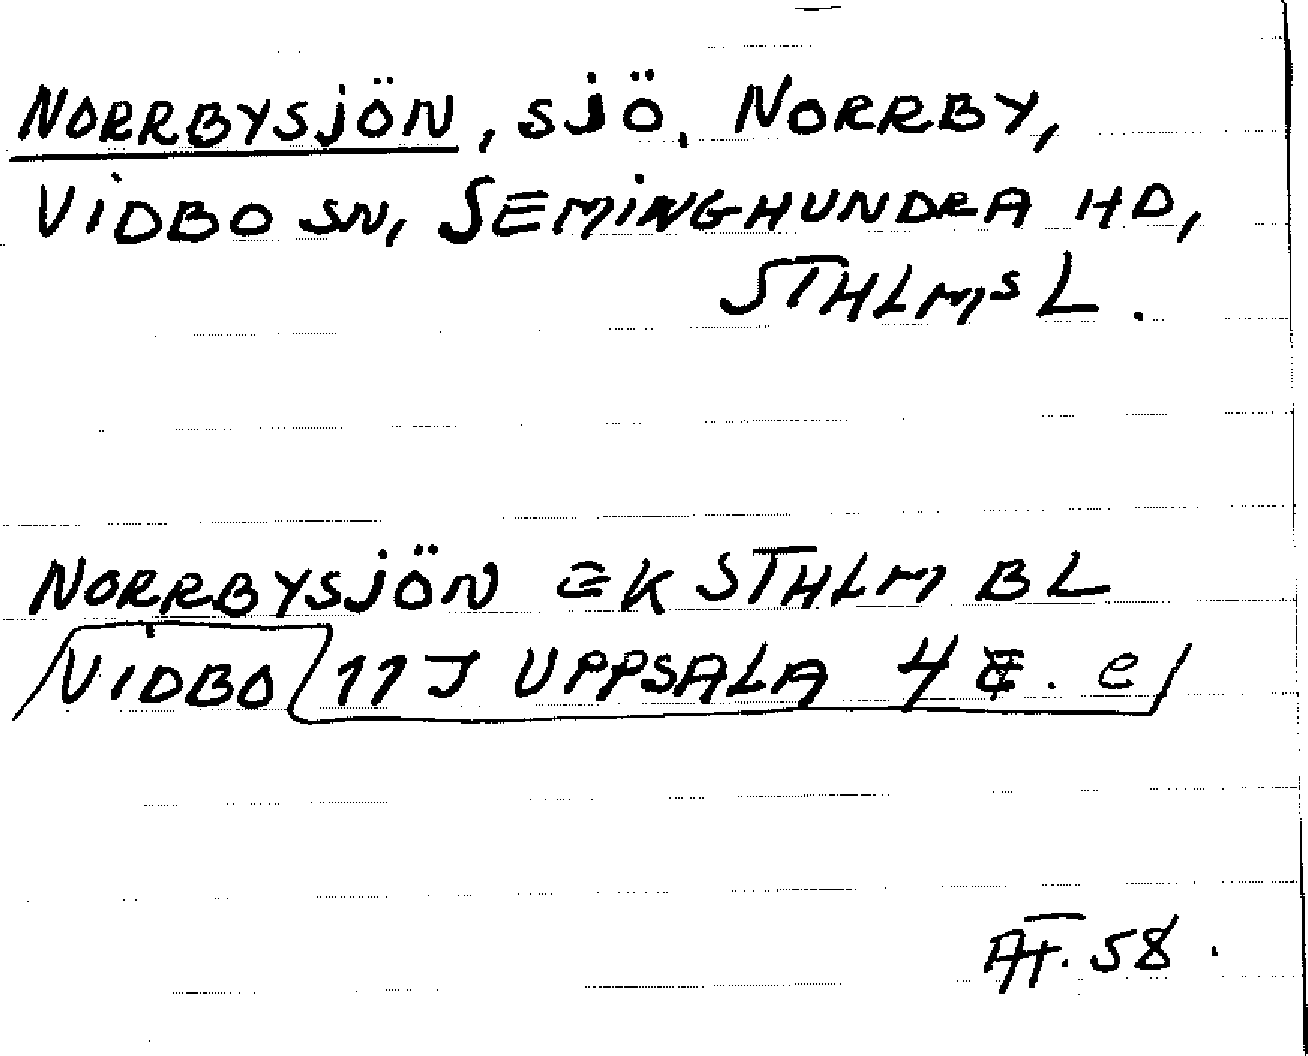 NORRBYSJÖN, SJÖ, NORRBY,
VIDBO SN, SEMINGHUNDRA HD,
STHLMS L.
NORRBYSJÖN EK STHLM BL
VIDBO 11J UPPSALA 4 E. e
AT. 58.